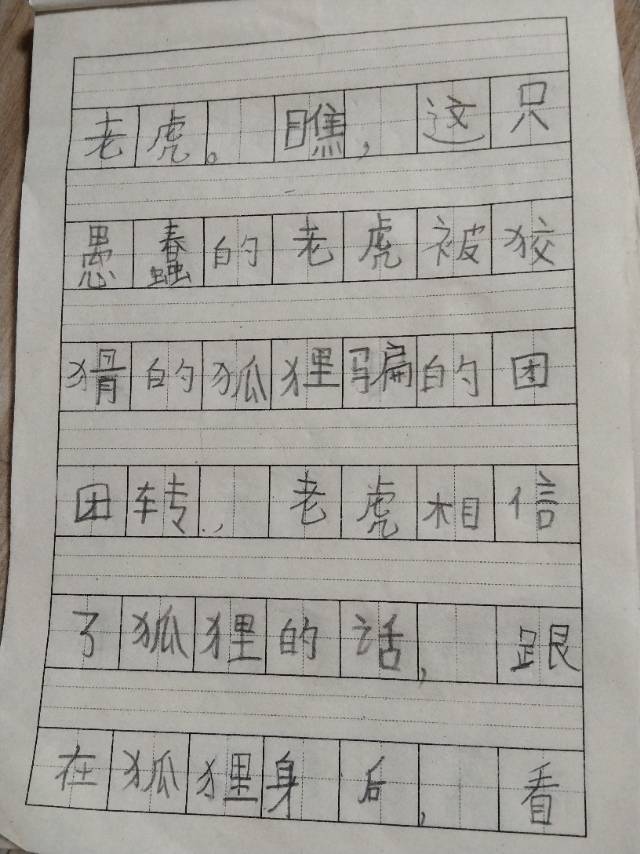 老虎。瞧，这只
愚蠢的老虎被狡
猾的狐狸骗的团
团转，老虎相信
了狐狸的话，跟
在狐狸身后，看